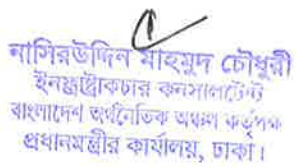 নাসিরউদ্দিন মাহমুদ চৌধুরী
ইনফ্রাষ্ট্রাকচার কনসালটেন্ট
বাংলাদেশ অর্থনৈতিক অঞ্চল কর্তৃপক্ষ
প্রধানমন্ত্রীর কার্যালয়, ঢাকা।